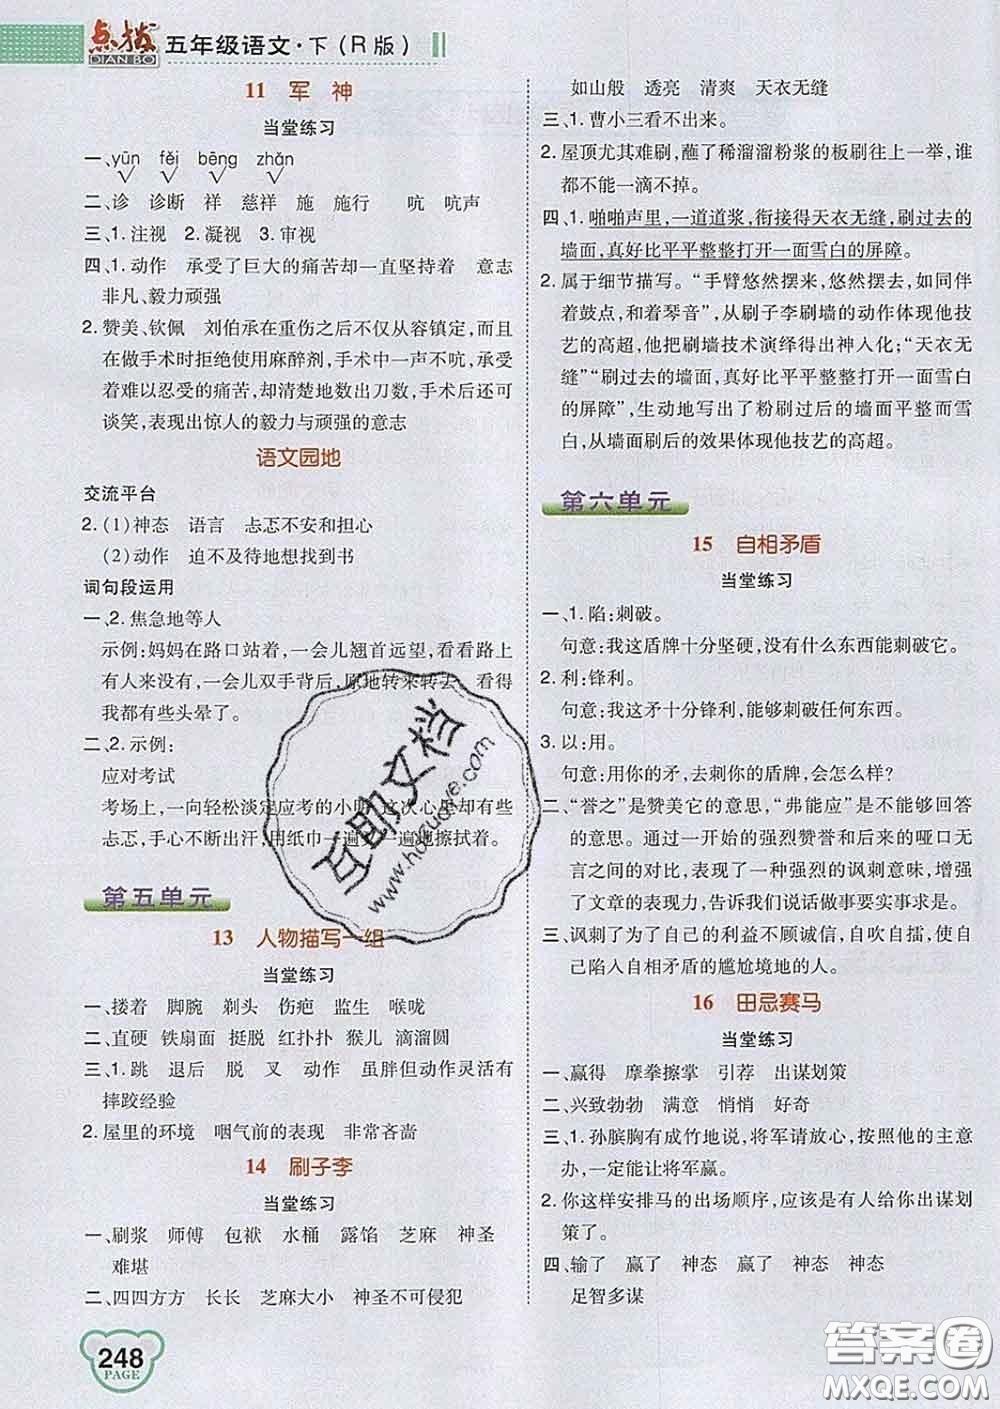 点拨
DIAN BO
五年级语文·下(R版)
11 军 神
当堂练习
一、yūn fěi bēng zhǎn
二、诊 诊断 祥 慈祥 施 施行 吭 吭声
三、1.注视 2.凝视 3.审视
四、1.动作 承受了巨大的痛苦却一直坚持着 意志
非凡、毅力顽强
2.赞美、钦佩 刘伯承在重伤之后不仅从容镇定,而且
在做手术时拒绝使用麻醉剂,手术中一声不吭,承受
着难以忍受的痛苦,却清楚地数出刀数,手术后还可
谈笑,表现出惊人的毅力与顽强的意志
语文园地
交流平台
2.(1)神态 语言 忐忑不安和担心
(2)动作 迫不及待地想找到书
词句段运用
一、2.焦急地等人
示例:妈妈在路口站着,一会儿翘首远望,看看路上
有没有人,一会儿双手背后,原地转来转去,看得
我都有些头晕了。
二、2.示例:
应对考试
考场上,一向轻松淡定应考的小明,这次心里却有些
忐忑,手心不断出汗,用纸巾一遍又一遍地擦拭着。
第五单元
13 人物描写一组
当堂练习
一、搂着 脚腕 剃头 伤疤 监生 喉咙
二、直硬 铁扇面 挺脱 红扑扑 猴儿 滴溜圆
三、1.跳 退后 脱 叉 动作 虽胖但动作灵活有
摔跤经验
2.屋里的环境 咽气前的表现 非常吝啬
14 刷子李
当堂练习
一、刷浆 师傅 包袱 水桶 露馅 芝麻 神圣
难堪
二、四四方方 长长 芝麻大小 神圣不可侵犯
248
PAGE
如山般 透亮 清爽 天衣无缝
三、1.曹小三看不出来。
2.屋顶尤其难刷,蘸了稀溜溜粉浆的板刷往上一举,谁
都不能一滴不掉。
四、1.啪啪声里,一道道浆,衔接得天衣无缝,刷过去的
墙面,真好比平平整整打开一面雪白的屏障。
2.属于细节描写。“手臂悠然摆来,悠然摆去,如同伴
着鼓点,和着琴音”,从刷子李刷墙的动作体现他技
艺的高超,他把刷墙技术演绎得出神入化;“天衣无
缝”“刷过去的墙面,真好比平平整整打开一面雪白
的屏障”,生动地写出了粉刷过后的墙面平整而雪
白,从墙面刷后的效果体现他技艺的高超。
第六单元
15 自相矛盾
当堂练习
一、1.陷:刺破。
句意:我这盾牌十分坚硬,没有什么东西能刺破它。
2.利:锋利。
句意:我这矛十分锋利,能够刺破任何东西。
3.以:用。
句意:用你的矛,去刺你的盾牌,会怎么样?
二、“誉之”是赞美它的意思,“弗能应”是不能够回答
的意思。通过一开始的强烈赞誉和后来的哑口无
言之间的对比,体现了一种强烈的讽刺意味,增强
了文章的表现力,告诉我们说话做事要实事求是。
三、讽刺了为了自己的利益不顾诚信,自吹自擂,使自
己陷入自相矛盾的尴尬境地的人。
16 田忌赛马
当堂练习
一、赢得 摩拳擦掌 引荐 出谋划策
二、兴致勃勃 满意 悄悄 好奇
三、1.孙膑胸有成竹地说,将军请放心,按照他的主意
办,一定能让将军赢。
2.你这样安排马的出场顺序,应该是有人给你出谋划
策了。
四、输了 赢了 神态 赢了 神态 神态
足智多谋
互助文档
www.hozuowe.com
答案圈
MXQE.COM